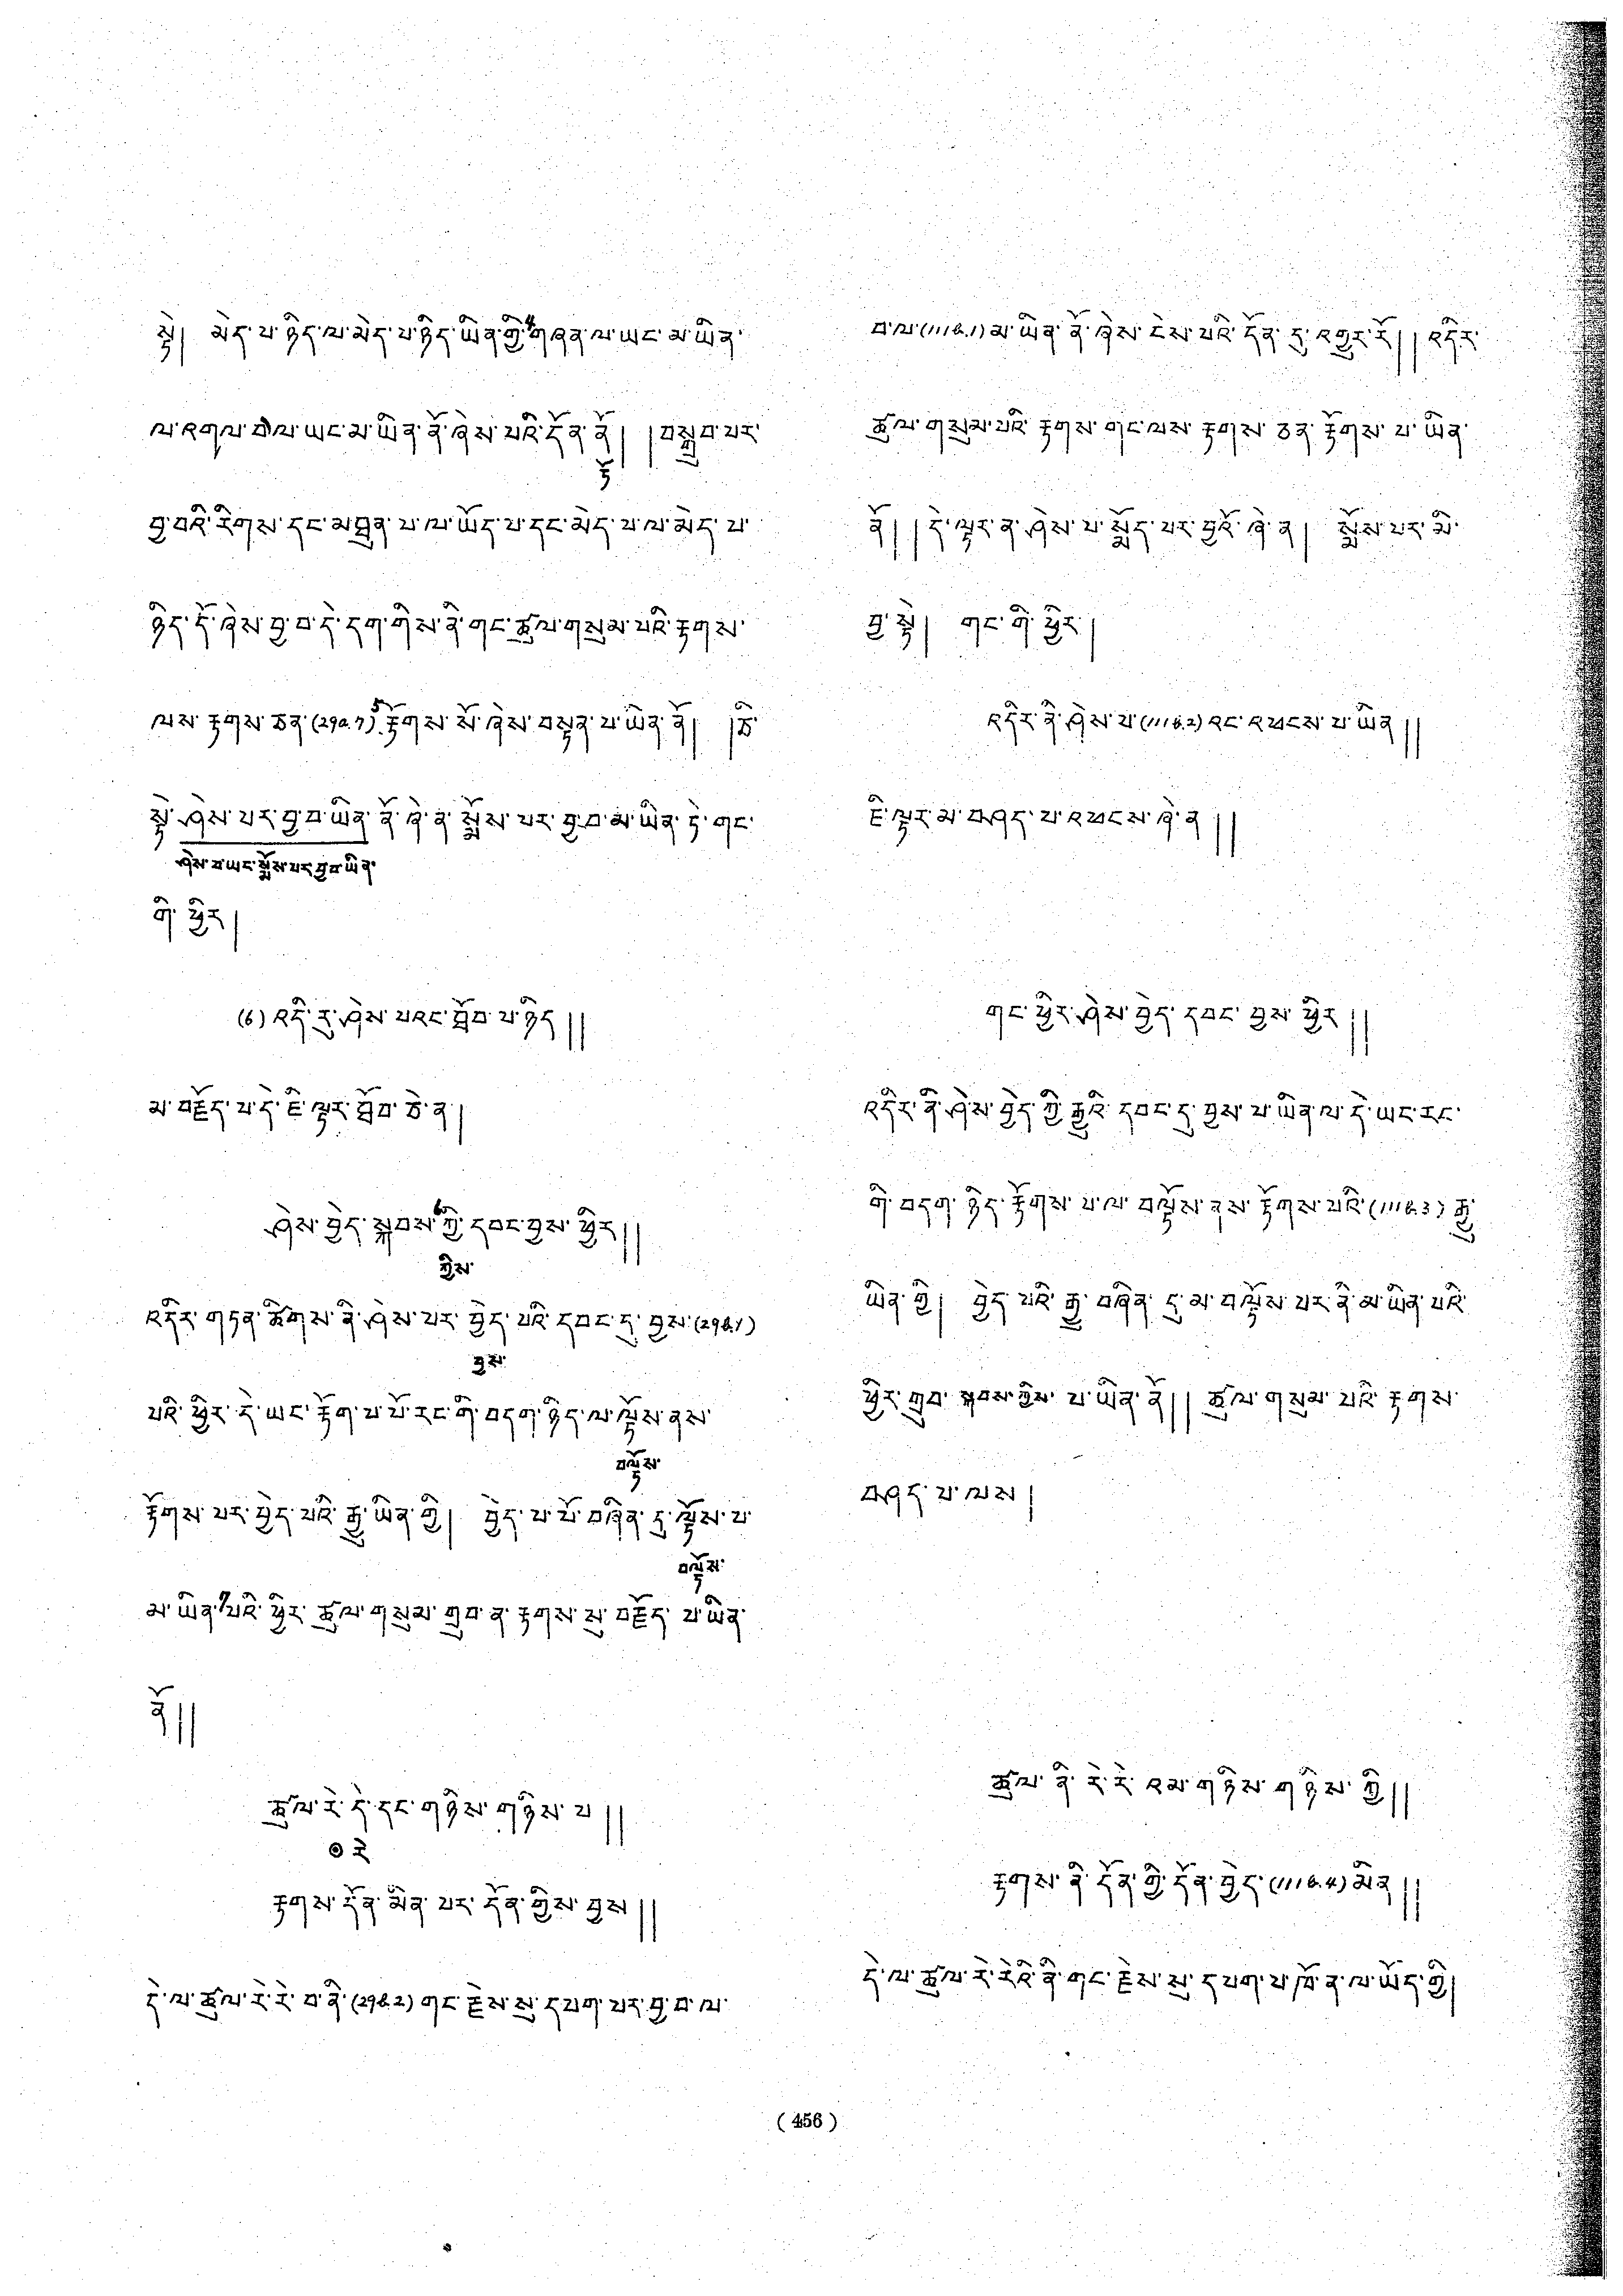 སྟེ། མེད་པ་ཉིད་ལ་མེད་པ་ཉིད་ཡིན་གྱི་གཞན་ལ་ཡང་མ་ཡིན་
ལ་འགལ་བ་ལ་ཡང་མ་ཡིན་ནོ་ཞེས་པའི་དོན་ནོ། །བསྒྲུབ་པར་
ཏོ
བྱ་བའི་རིགས་དང་མཐུན་པ་ལ་ཡོད་པ་དང་མེད་པ་ལ་མེད་པ་
ཉིད་དོ་ཞེས་བྱ་བ་དེ་དག་གིས་ནི་གང་ཚུལ་གསུམ་པའི་རྟགས་
ལས་རྟགས་ཅན་(29a.7)རྟོགས་སོ་ཞེས་བསྟན་པ་ཡིན་ནོ། །ཅི་
སྟེ་ཤེས་པར་བྱ་བ་ཡིན་ནོ་ཞེ་ན་སྨོས་པར་བྱ་བ་མ་ཡིན་ཏེ་གང་
ཤེས་བ་ཡང་སྨོས་པར་བྱ་བ་ཡིན་
གི་ཕྱིར།
(6) འདི་རུ་ཤེས་པའང་ཐོབ་པ་ཉིད།།
མ་བརྗོད་པ་དེ་ཇི་ལྟར་ཐོབ་ཅེ་ན།
ཤེས་བྱེད་སྐབས་ཀྱི་དབང་བྱས་ཕྱིར།།
ཀྱིས་
འདིར་གཏན་ཚིགས་ནི་ཤེས་པར་བྱེད་པའི་དབང་དུ་བྱས་(29b.1)
བྱས་
པའི་ཕྱིར་དེ་ཡང་རྟོག་པ་པོ་རང་གི་བདག་ཉིད་ལ་ལྟོས་ནས་
བལྟོས་
རྟོགས་པར་བྱེད་པའི་རྒྱུ་ཡིན་གྱི། བྱེད་པ་པོ་བཞིན་དུ་ལྟོས་པ་
བལྟོས་
མ་ཡིན་པའི་ཕྱིར་ཚུལ་གསུམ་གྲུབ་ན་རྟགས་སུ་བརྗོད་པ་ཡིན་
ནོ།།
ཚུལ་རེ་དེ་དང་གཉིས་གཉིས་པ།།
རེ
རྟགས་དོན་མིན་པར་དོན་གྱིས་བྱས།།
དེ་ལ་ཚུལ་རེ་རེ་བ་ནི་(29b.2)གང་རྗེས་སུ་དཔག་པར་བྱ་བ་ལ་
བ་ལ་(111b.1)མ་ཡིན་ནོ་ཞེས་ངེས་པའི་དོན་དུ་འགྱུར་རོ།།འདིར་
ཚུལ་གསུམ་པའི་རྟགས་གང་ལས་རྟགས་ཅན་རྟོགས་པ་ཡིན་
ནོ། །དེ་ལྟར་ན་ཤེས་པ་སྨོད་པར་བྱའོ་ཞེ་ན། སྨོས་པར་མི་
བྱ་སྟེ། གང་གི་ཕྱིར།
འདིར་ནི་ཤེས་པ་(111b.2)འང་འཕངས་པ་ཡིན།།
ཇི་ལྟར་མ་བཤད་པ་འཕངས་ཞེ་ན།།
གང་ཕྱིར་ཤེས་བྱེད་དབང་བྱས་ཕྱིར།།
འདིར་ནི་ཤེས་བྱེད་ཀྱི་རྒྱུའི་དབང་དུ་བྱས་པ་ཡིན་ལ་དེ་ཡང་རང་
གི་བདག་ཉིད་རྟོགས་པ་ལ་བལྟོས་ནས་རྟོགས་པའི་(111b.3)རྒྱུ་
ཡིན་གྱི། བྱེད་པའི་རྒྱུ་བཞིན་དུ་མ་བལྟོས་པར་ནི་མ་ཡིན་པའི་
ཕྱིར་གྲུབ་སྐབས་ཀྱིས་པ་ཡིན་ནོ།།ཚུལ་གསུམ་པའི་རྟགས་
བཤད་པ་ལས།
ཚུལ་ནི་རེ་རེ་འམ་གཉིས་གཉིས་ཀྱི།།
རྟགས་ནི་དོན་གྱི་དོན་བྱེད་(111b.4)མིན།།
དེ་ལ་ཚུལ་རེ་རེའི་ནི་གང་རྗེས་སུ་དཔག་པ་ཁོ་ན་ལ་ཡོད་ཀྱི།
(456)